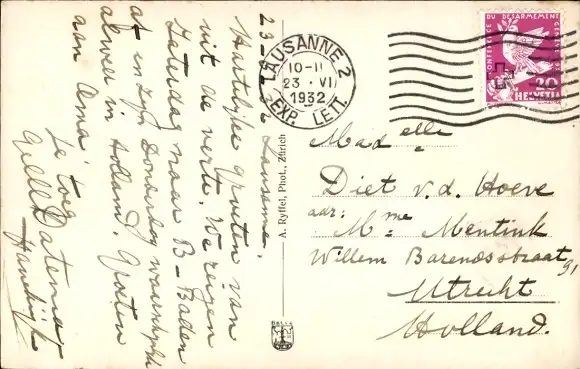 23-6-32 Lausanne.
Hartelijke groeten van
uit de verte. We reizen
Zaterdag naar B-Baden
en zijn Donderdag waarschijnlijk
alweer in Holland. Groeten
aan Oma
Je toeg.
Datema
A. Ryffel, Phot., Zürich
LAUSANNE 2
10-11
23. VI
1932
EXP. LETT.
CONFÉRENCE DU DÉSARMEMENT
20
HELVETIA
Madelle
Diet v.d. Hoeve
adr: Mme Mentink
Willem Barendsstraat 91
Utrecht
Holland.